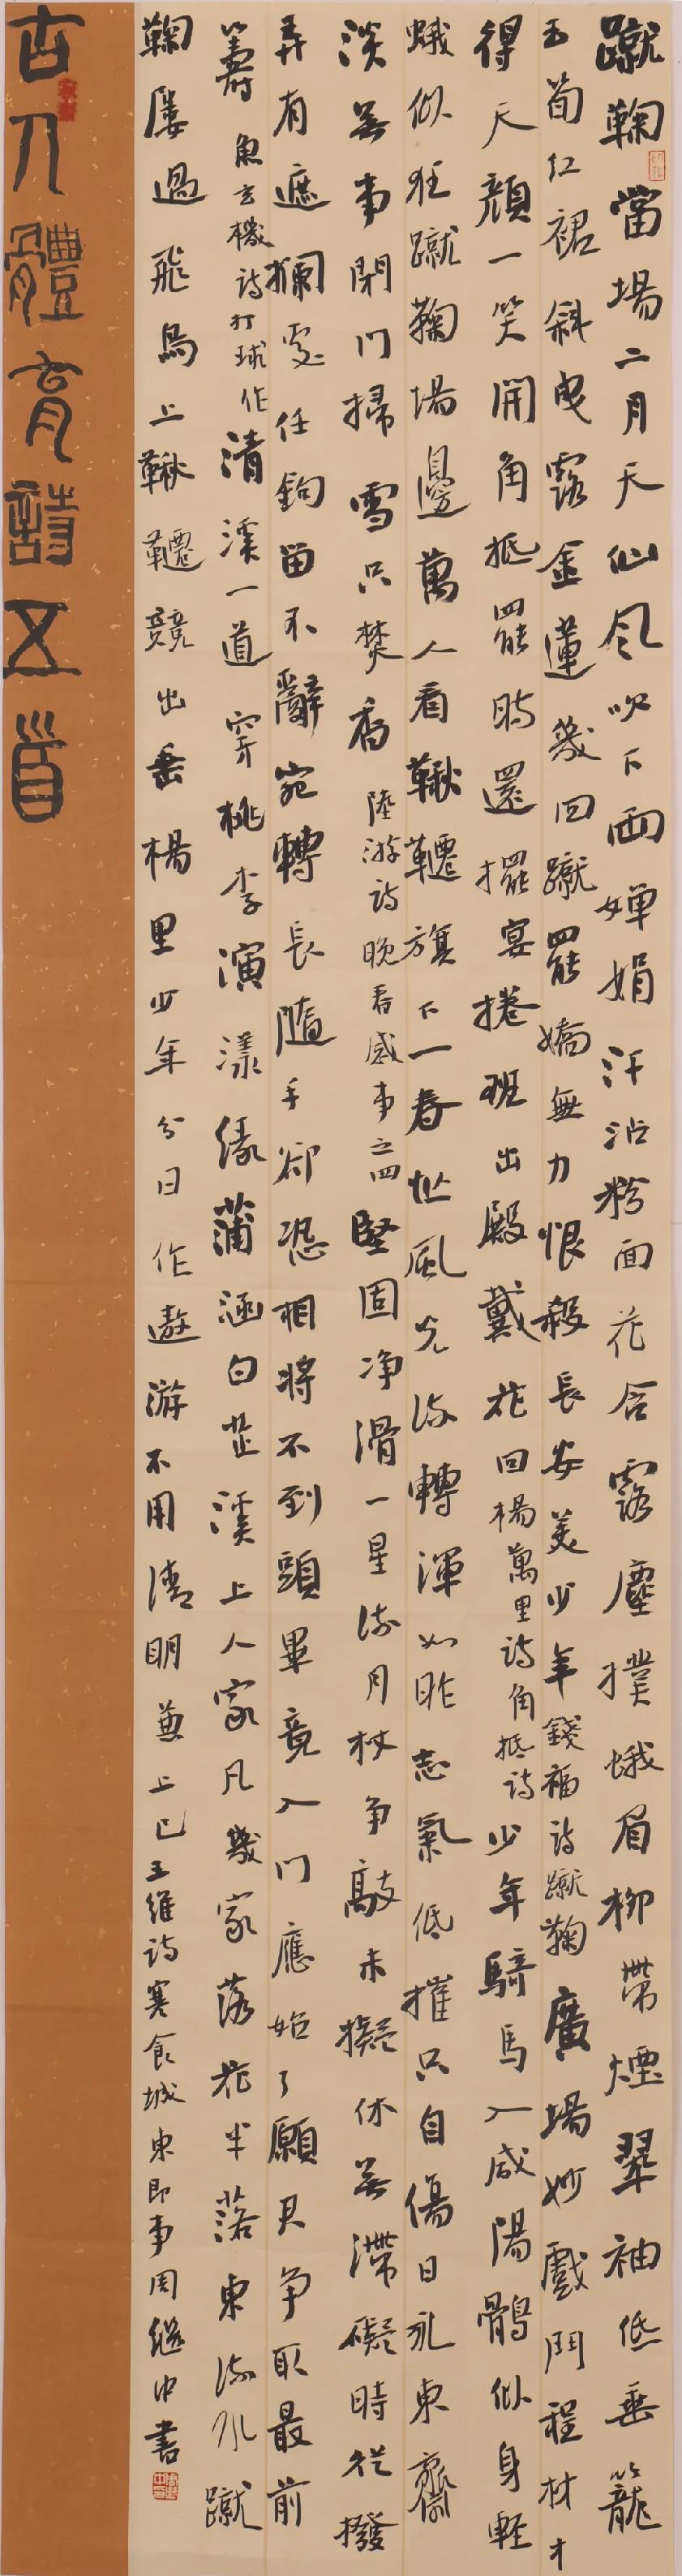 蹴鞠當場二月天仙风吹下兩嬋娟汗沾粉面花含露塵撲蛾眉柳帶煙翠袖低垂籠
玉筍紅裙斜曳露金蓮幾回蹴罷嬌無力恨殺長安美少年錢福詩蹴鞠廣場妙戲鬥程材才
得天顏一笑開角抵罷時還擺宴捲班出殿戴花回楊萬里詩角抵詩少年騎馬入咸陽鶻似身輕
蛾似狂蹴鞠場邊萬人看鞦韆旗下一春忙風光流轉渾如昨志氣低摧只自傷日永東齋
淡無事閉門掃雪只焚香陸游詩晚春感事之四堅固净滑一星流月杖爭敲未擬休無滯礙時從撥
弄有遮攔處任鉤留不辭宛轉長隨手卻恐相將不到頭畢竟入門應始了願君爭取最前
籌魚玄機詩打球作清溪一道穿桃李演漾綠蒲涵白芷溪上人家凡幾家落花半落東流水蹴
鞠屢過飛鳥上鞦韆競出垂楊里少年分日作遨游不用清明兼上巳王維詩寒食城東即事周繼中書
古人體育詩五首